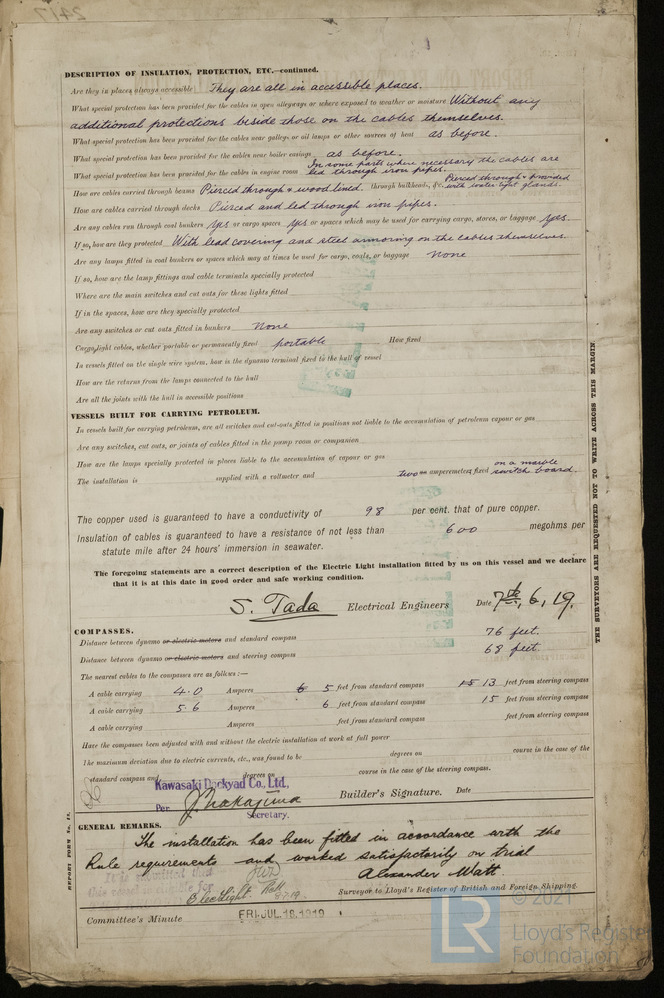 DESCRIPTION OF INSULATION, PROTECTION, ETC.—continued.
Are they in places always accessible They are all in accessible places.
What special protection has been provided for the cables in open alleyways or where exposed to weather or moisture Without any
additional protections beside those on the cables themselves.
What special protection has been provided for the cables near galleys or oil lamps or other sources of heat as before.
What special protection has been provided for the cables near boiler casings as before.
What special protection has been provided for the cables in engine room In some parts where necessary the cables are led through iron pipes.
How are cables carried through beams Pierced through & wood lined through bulkheads, &c. Pierced through & provided with water tight glands.
How are cables carried through decks Pierced and led through iron pipes.
Are any cables run through coal bunkers yes or cargo spaces yes or spaces which may be used for carrying cargo, stores, or baggage yes.
If so, how are they protected With lead covering and steel armoring on the cables themselves.
Are any lamps fitted in coal bunkers or spaces which may at times be used for cargo, coals, or baggage None
If so, how are the lamp fittings and cable terminals specially protected
Where are the main switches and cut outs for these lights fitted
If in the spaces, how are they specially protected
Are any switches or cut outs fitted in bunkers None
Cargo light cables, whether portable or permanently fixed portable How fixed
In vessels fitted on the single wire system, how is the dynamo terminal fixed to the hull of vessel
How are the returns from the lamps connected to the hull
Are all the joints with the hull in accessible positions
VESSELS BUILT FOR CARRYING PETROLEUM.
In vessels built for carrying petroleum, are all switches and cut-outs fitted in positions not liable to the accumulation of petroleum vapour or gas
Are any switches, cut outs, or joints of cables fitted in the pump room or companion
How are the lamps specially protected in places liable to the accumulation of vapour or gas
The installation is supplied with a voltmeter and two an amperemeter, fixed on a marble switch board.
The copper used is guaranteed to have a conductivity of 98 per cent. that of pure copper.
Insulation of cables is guaranteed to have a resistance of not less than 600 megohms per
statute mile after 24 hours' immersion in seawater.
The foregoing statements are a correct description of the Electric Light installation fitted by us on this vessel and we declare
that it is at this date in good order and safe working condition.
S. Tada Electrical Engineers Date 7th, 6, 19.
COMPASSES.
Distance between dynamo or electric motors and standard compass 76 feet.
Distance between dynamo or electric motors and steering compass 68 feet.
The nearest cables to the compasses are as follows:—
A cable carrying 4.0 Amperes 6 5 feet from standard compass 15 13 feet from steering compass
A cable carrying 5.6 Amperes 6 feet from standard compass 15 feet from steering compass
A cable carrying Amperes feet from standard compass feet from steering compass
Have the compasses been adjusted with and without the electric installation at work at full power
The maximum deviation due to electric currents, etc., was found to be degrees on course in the case of the
standard compass and degrees on course in the case of the steering compass.
Kawasaki Dockyad Co., Ltd.,
Per J. Nakajima Builder's Signature. Date
Secretary.
GENERAL REMARKS.
The installation has been fitted in accordance with the
Rule requirements and worked satisfactorily on trial
Alexander Watt
Elec Light.
Surveyor to Lloyd's Register of British and Foreign Shipping.
Committee's Minute FRI. JUL. 18. 1919
THE SURVEYORS ARE REQUESTED NOT TO WRITE ACROSS THIS MARGIN
© 2021
LR
Lloyd's Register
Foundation